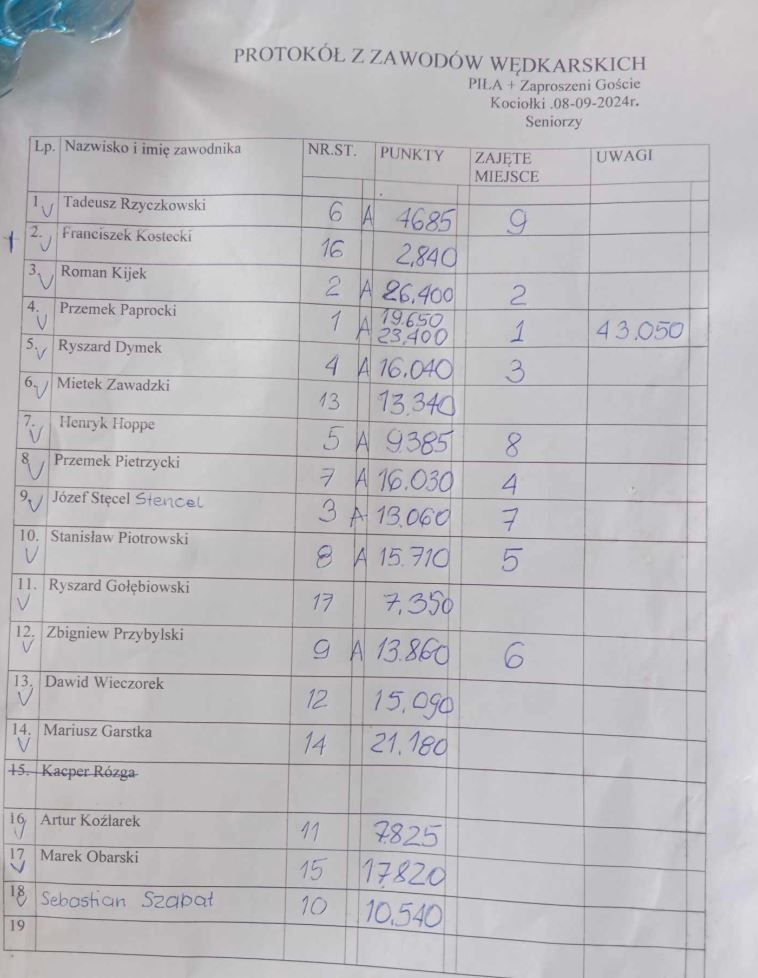 PROTOKÓŁ Z ZAWODÓW WĘDKARSKICH
PIŁA + Zaproszeni Goście
Kociołki .08-09-2024r.
Seniorzy
Lp. Nazwisko i imię zawodnika NR.ST. PUNKTY ZAJĘTE MIEJSCE UWAGI
1 Tadeusz Rzyczkowski 6 A 4685 9
2. Franciszek Kostecki 16 2,840
3. Roman Kijek 2 A 26,400 2
4. Przemek Paprocki 1 A 19.650 23,400 1 43.050
5. Ryszard Dymek 4 A 16.040 3
6. Mietek Zawadzki 13 13,340
7. Henryk Hoppe 5 A 9.385 8
8 Przemek Pietrzycki 7 A 16.030 4
9. Józef Stęcel Stencel 3 A 13.060 7
10. Stanisław Piotrowski 8 A 15.710 5
11. Ryszard Gołębiowski 17 7,350
12. Zbigniew Przybylski 9 A 13.860 6
13. Dawid Wieczorek 12 15,090
14. Mariusz Garstka 14 21,180
15. Kacper Rózga
16 Artur Koźlarek 11 7825
17 Marek Obarski 15 17820
18 Sebastian Szabat 10 10,540
19